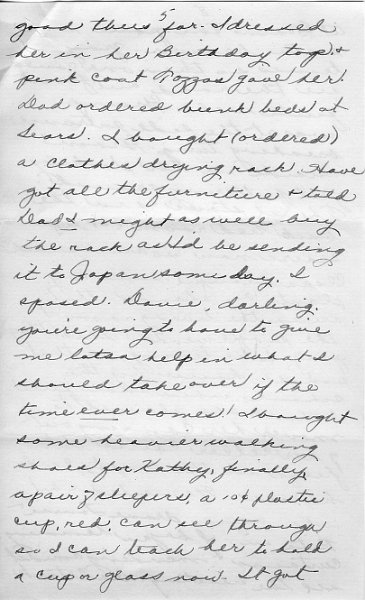 5
good thus far. I dressed
her in her Birthday top &
pink coat Pozzos gave her.
Dad ordered bunk beds at
Sears. I bought (ordered)
a clothes drying rack. Have
got all the furniture & told
Dad I might as well buy
the rack as I'd be sending
it to Japan some day. I
sposed. Davie, darling,
you're going to have to give
me lotsa help in what I
should take over if the
time ever comes! I bought
some heavier walking
shoes for Kathy, finally,
a pair of sleepers, a 10¢ plastic
cup, red, can see through
so I can teach her to hold
a cup or glass now. It got